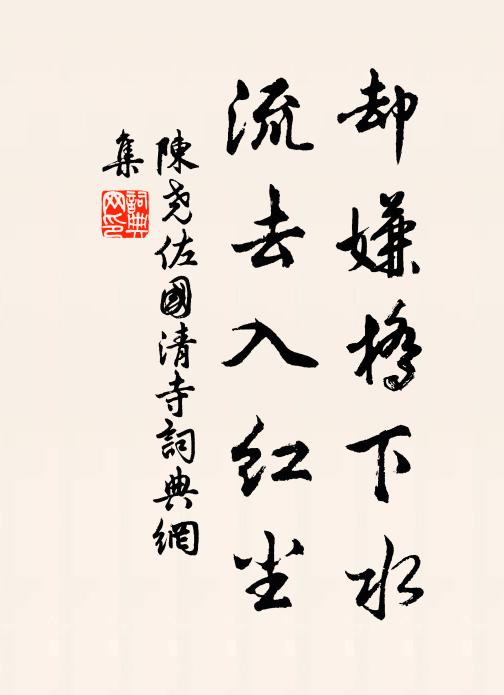 却嫌橋下水
流去入紅尘
陳尭佐國清寺詞典網
集
詞典
网印